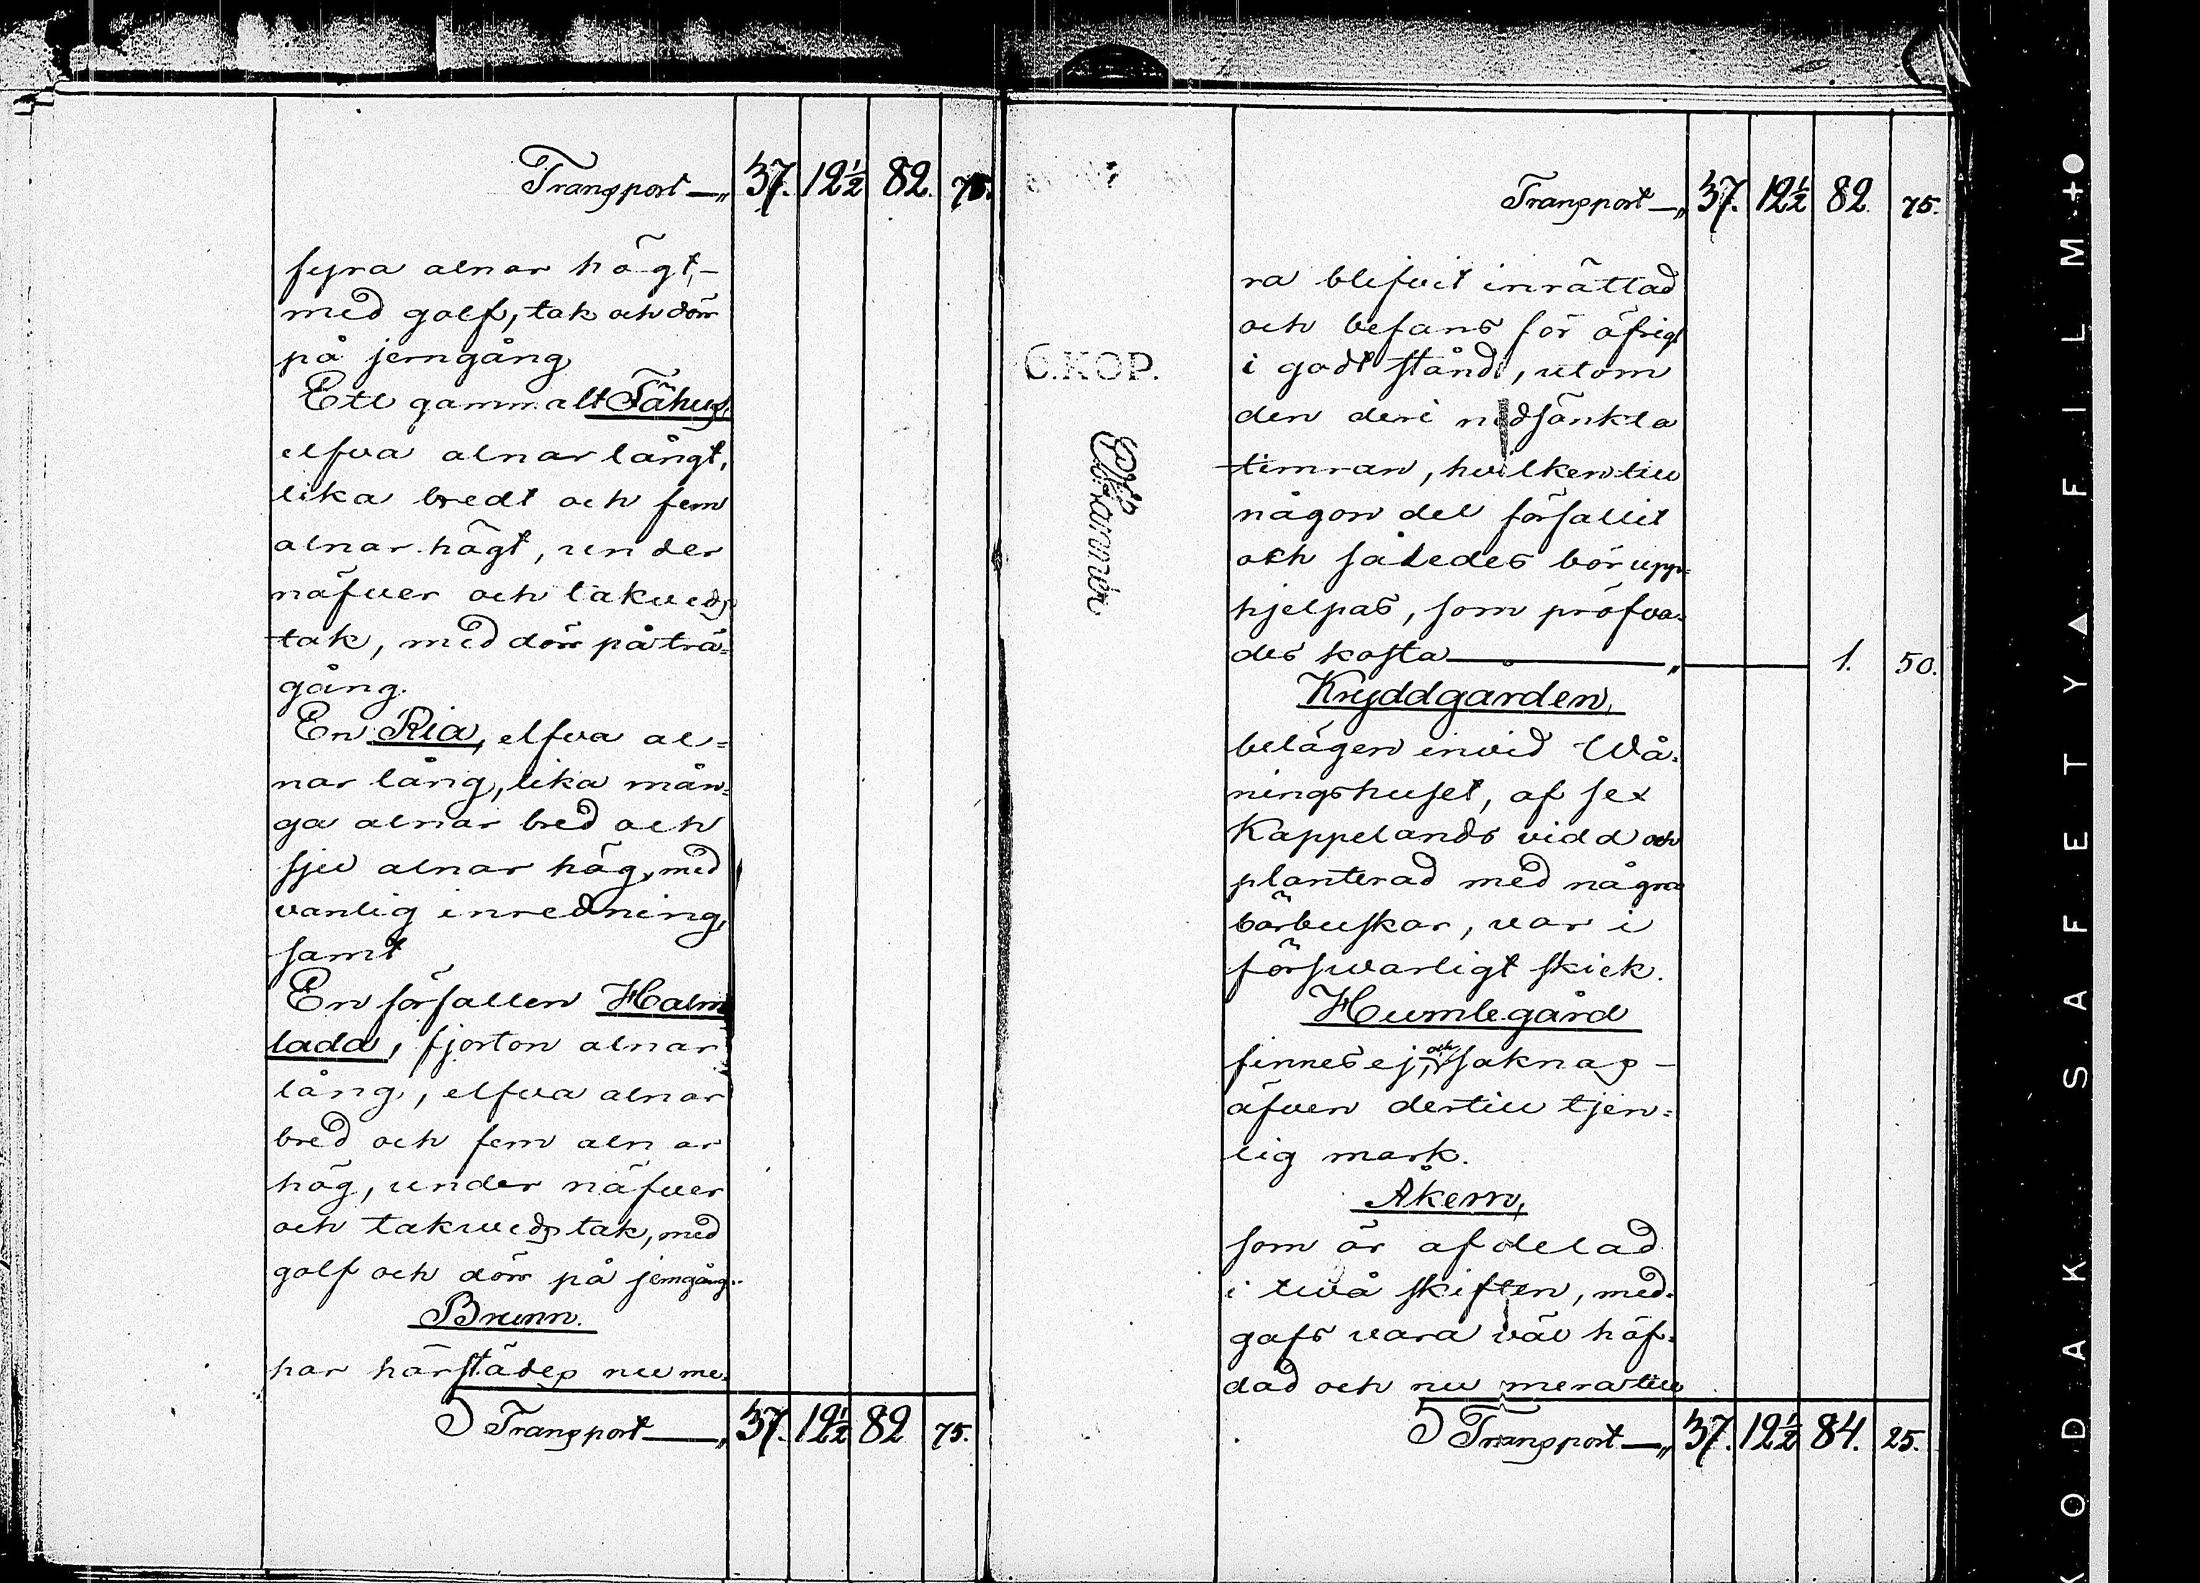 Transport —„ 37. 12½ 82. 75.
fyra alnar högt,-
med golf, tak och dörr
på jerngång
Ett gammalt Fähus,
elfva alnar långt,
lika bredt och fem
alnar högt, under
näfver och takveds
tak, med dörr på trä=
gång.
En Ria, elfva al=
nar lång, lika mån=
ga alnar bred och
sju alnar hög, med
vanlig inredning,
samt
En förfallen Halm
lada, fjorton alnar
lång, elfva alnar
bred och fem alnar
hög, under näfver
och takveds tak, med
golf och dörr på jerngång.
Brunn.
har härstädes nu me-
Transport —„ 37. 12½ 82 75.
C.KOP.
Transport —„ 37. 12½ 82. 75.
ra blifvit inrättad
och befans för öfrigt
i godt stånd, utom
den deri nedsänkta
timran, hvilken till
någon del förfallit
och således bör upp=
hjelpas, som pröfva-
des kosta —„ 1. 50.
Kryddgården,
belägen invid Wå-
ningshuset, af sex
Kappelands vidd och
planterad med några
bärbuskar, var i
försvarligt skick.
Humlegård
finnes ej, och saknas -
äfven dertill tjen=
lig mark.
Åkern,
som är afdelad
i tvvå skiften, med-
gafs vara väl häf-
dad och nu mera till
Transport —„ 37. 12½ 84. 25.
KODAK SAFETY ▲ FILM